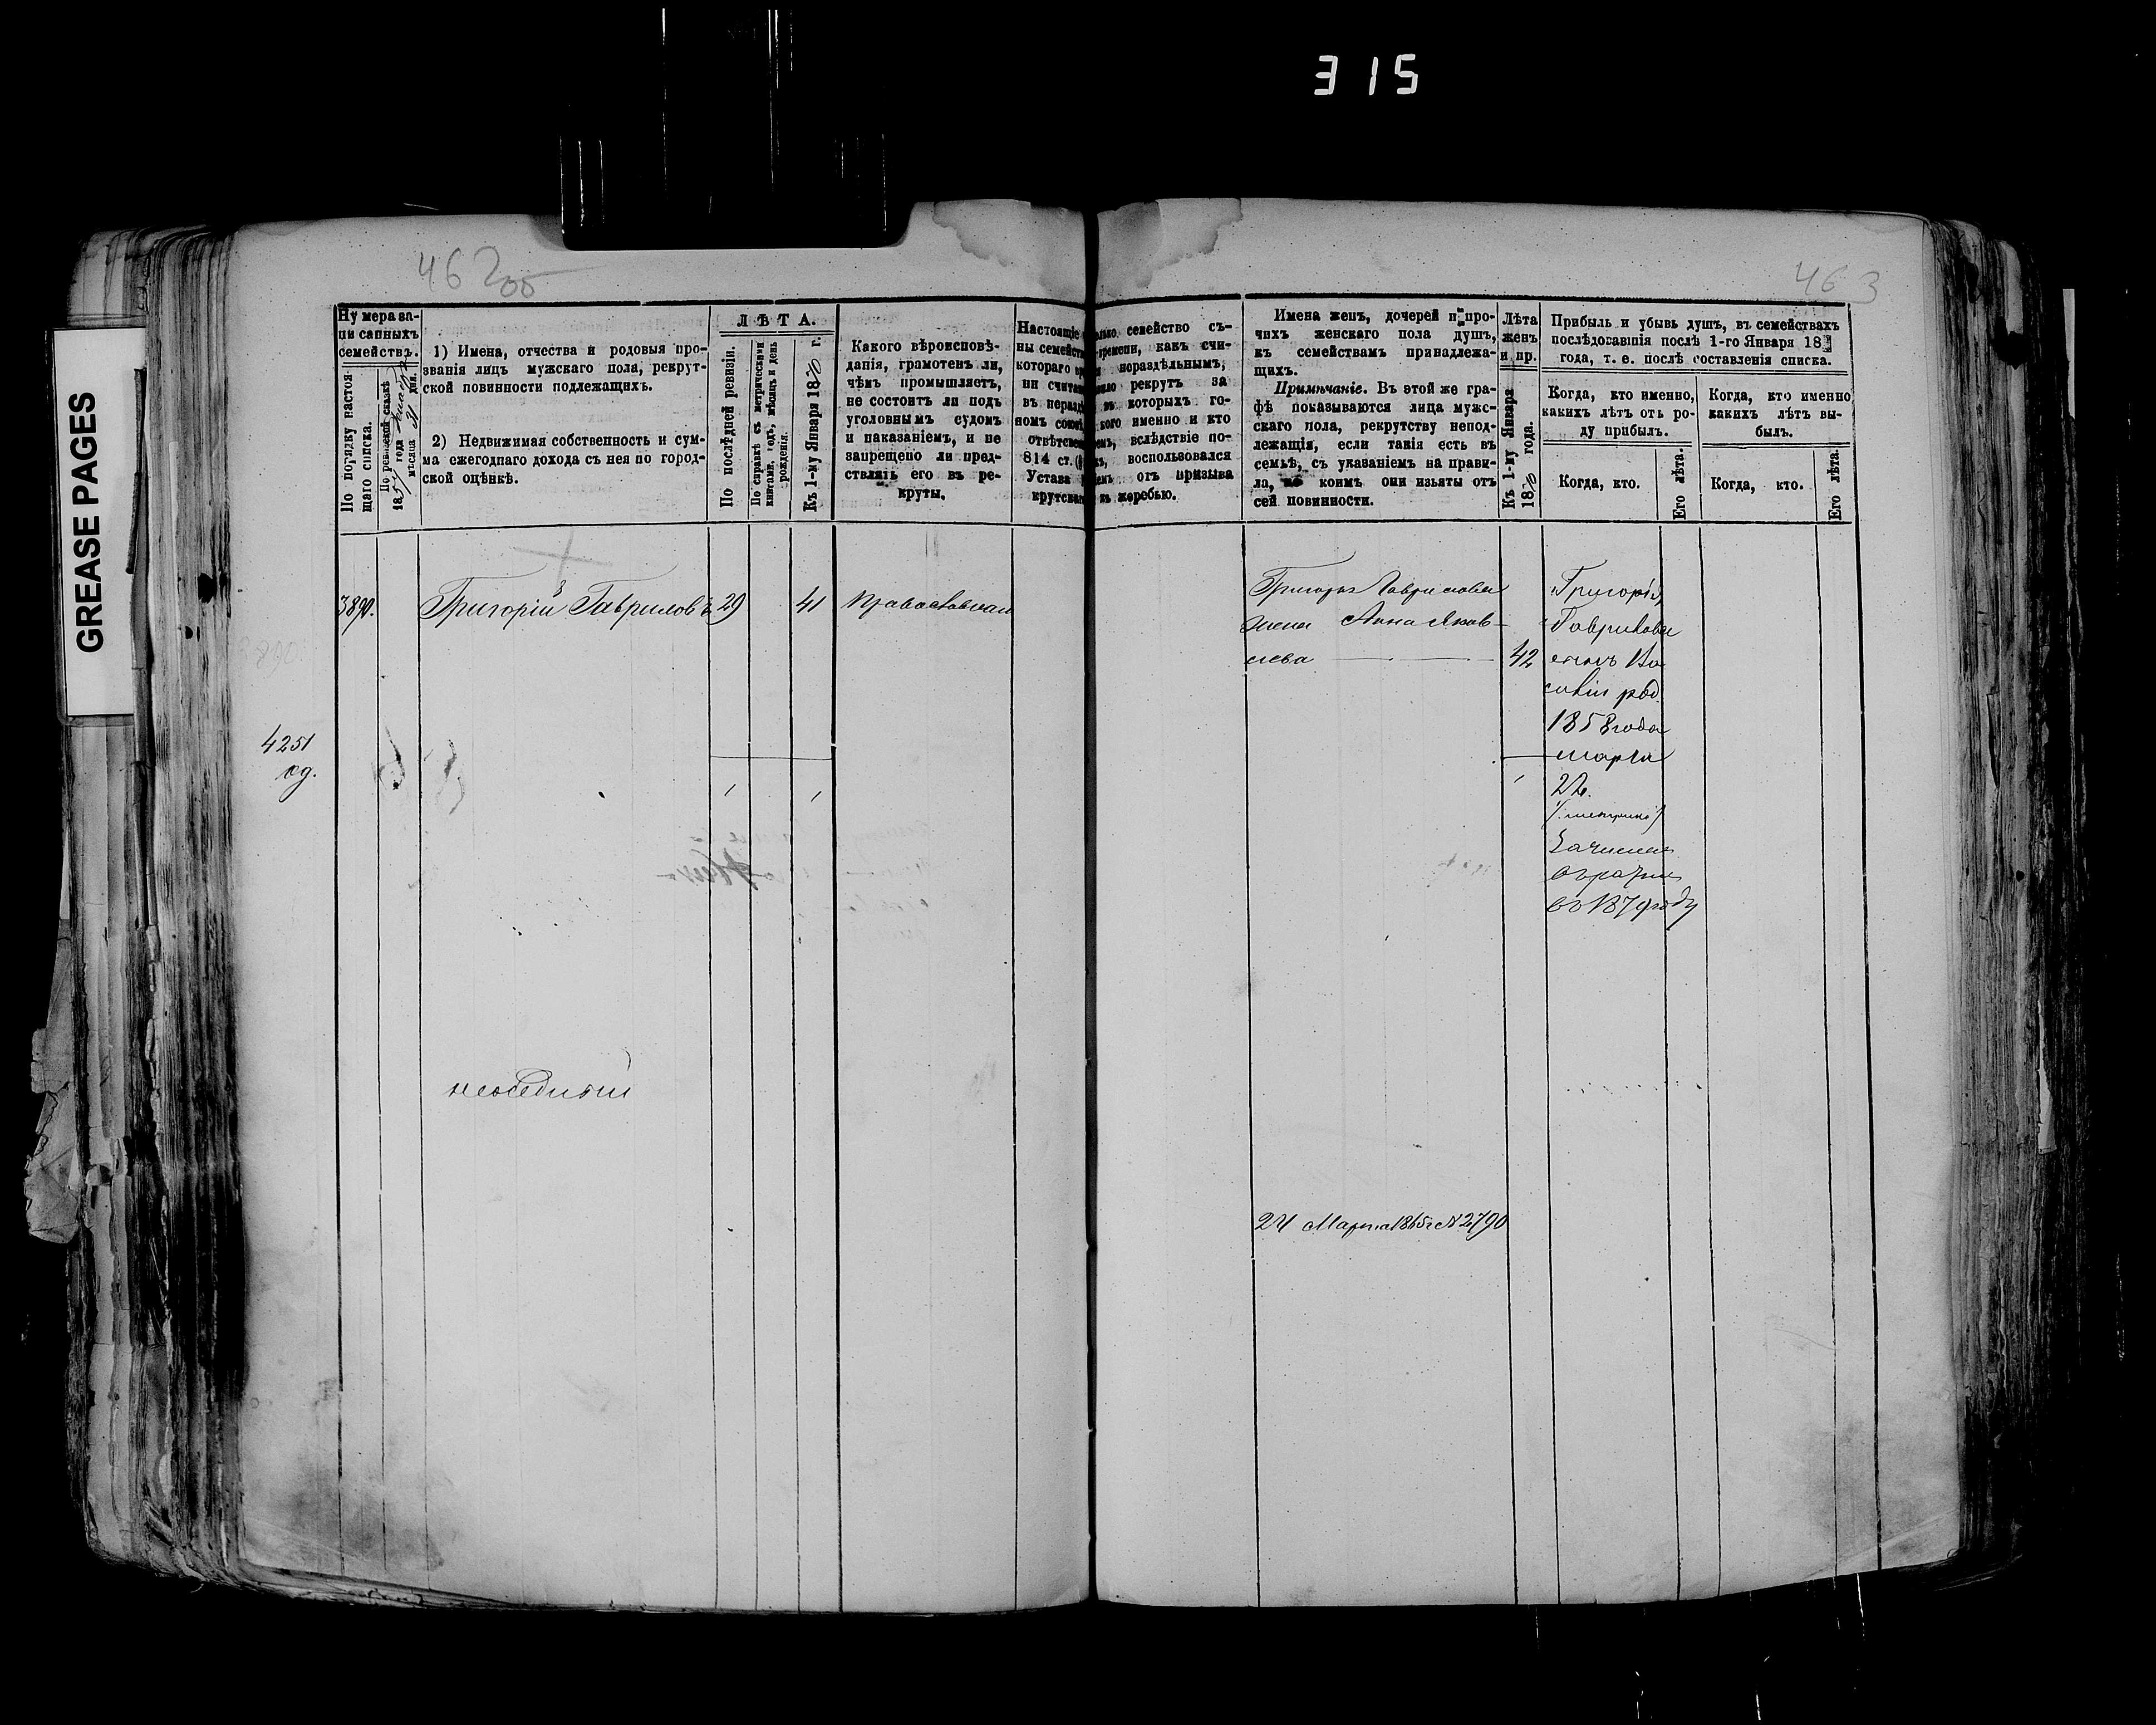 315
GREASE PAGES
462об
463
Нумера за-
писанныхъ
семействъ.
По порядку настоя-
щаго списка.
По ревизской сказкѣ
1857 года
мѣсяца 31 дня.
1) Имена, отчества и родовыя про-
званія лицъ мужскаго пола, рекрут-
ской повинности подлежащихъ.
2) Недвижимая собственность и сум-
ма ежегоднаго дохода съ нея по город-
ской оцѣнкѣ.
ЛѢТА.
По послѣдней ревизіи.
По справкѣ съ метрическими
книгами, годъ, мѣсяцъ и день
рожденія.
Къ 1-му Января 1870 г.
Какого вѣроисповѣ-
данія, грамотенъ ли,
чѣмъ промышляетъ,
не состоитъ ли подъ
уголовнымъ судомъ
и наказаніемъ, и не
запрещено ли пред-
ставлять его въ ре-
круты.
Настоящіе
ны семейст
котораго
ни считат
въ нераз
номъ
отвѣтс
814 ст.
Устава
крутска
семейство съ-
времени, какъ счи-
нераздѣльнымъ,
рекрутъ за
въ которыхъ го-
кого именно и кто
вслѣдствіе по-
воспользовался
отъ призыва
къ жеребью.
Имена женъ, дочерей и про-
чихъ женскаго пола душъ,
къ семействамъ принадлежа-
щихъ.
Примѣчаніе. Въ этой же гра-
фѣ показываются лица мужс-
скаго пола, рекрутству непод-
лежащія, если такія есть въ
семьѣ, съ указаніемъ на прави-
ла, по коимъ они изъяты отъ
сей повинности.
Лѣта
женъ
и пр.
Къ 1-му Января
1870 года.
Прибыль и убыль душъ, въ семействахъ
послѣдовавшія послѣ 1-го Января 18
года, т. е. послѣ составленія списка.
Когда, кто именно,
какихъ лѣтъ отъ ро-
ду прибылъ.
Когда, кто.
Его лѣта.
Когда, кто именно
какихъ лѣтъ вы-
былъ.
Когда, кто.
Его лѣта.
3890.
Григорій Гавриловъ
29
41
Православнаго
4251
од.
неоседлый
Григорья Гаврилова
жена Анна Яков-
лева
42
Григорія
Гаврилова
сынъ Ва
силій род.
1858 года
марта
22.
въ 1879 году
24 Марта 1865 г № 2790